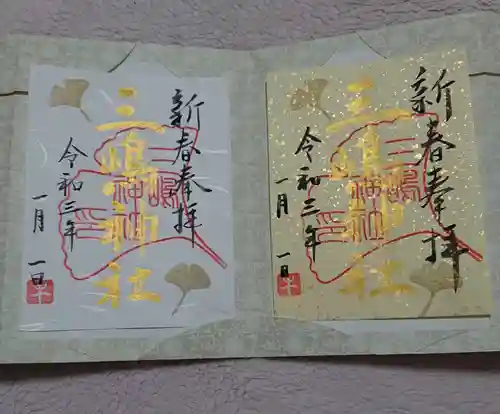 新春奉拝
三嶋神社
三嶋神社
令和三年
一月一日
新春奉拝
三嶋神社
三嶋神社
令和三年
一月一日